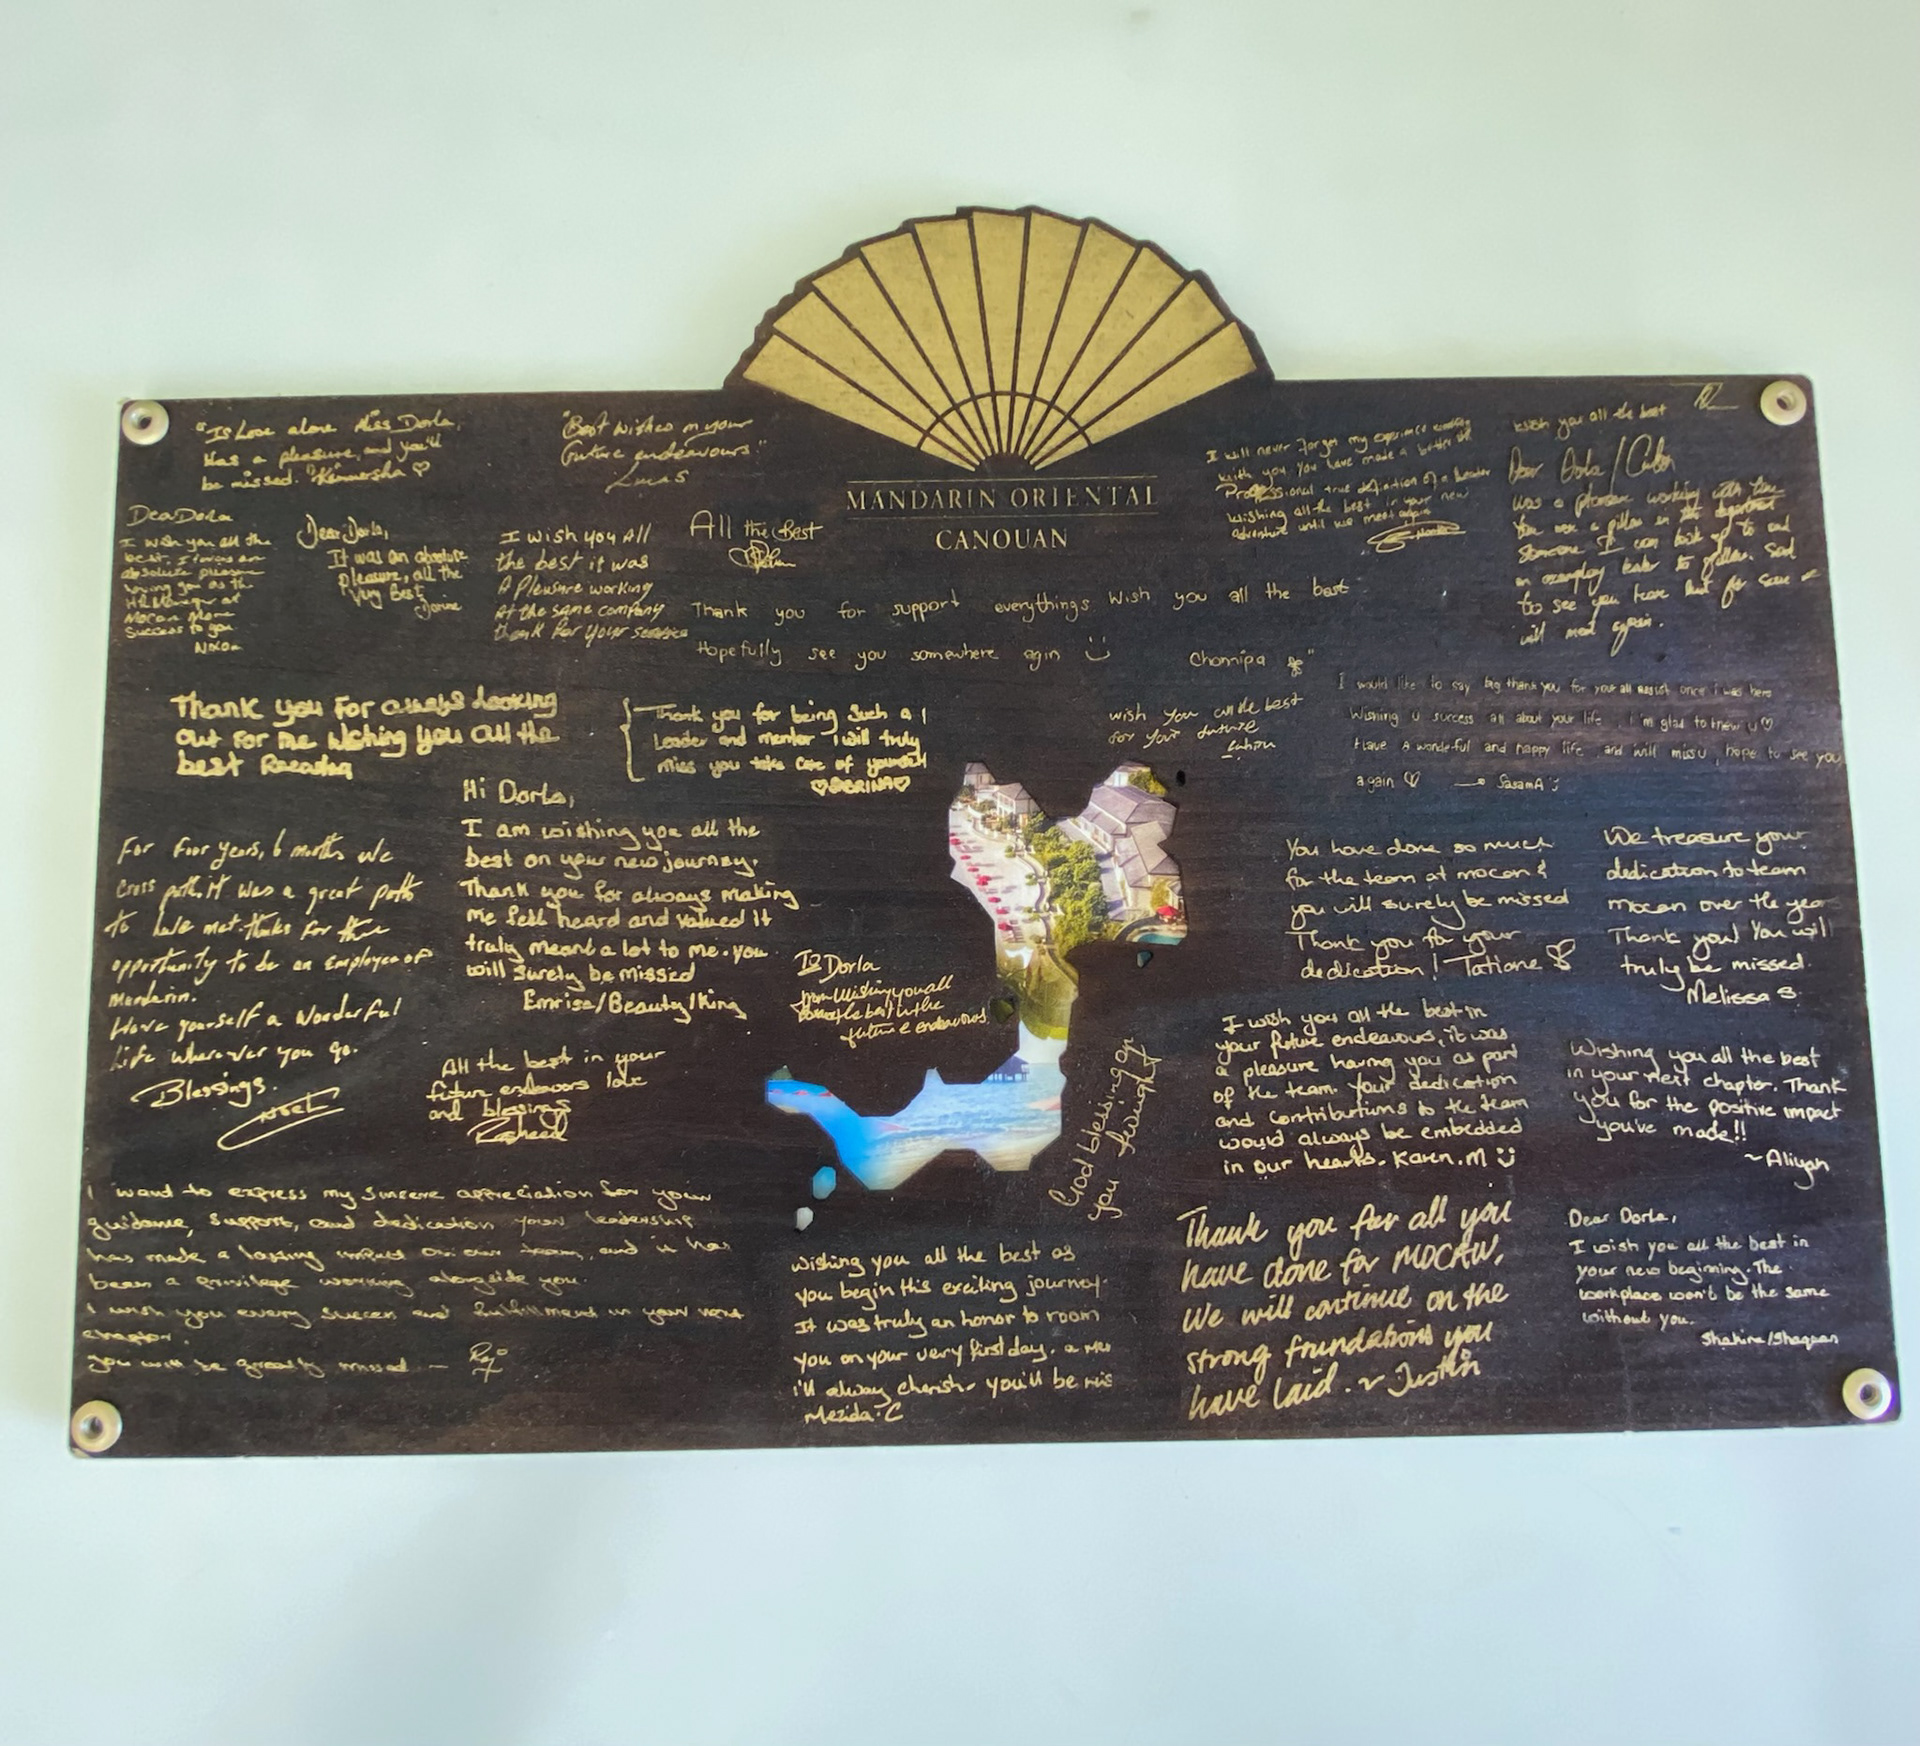 "Is Love alone Miss Dorla,
Was a pleasure, and you'll
be missed. "Kimmersha ♡
"Best wishes in your
future endeavours."
Lucas
MANDARIN ORIENTAL
CANOUAN
I will never forget my experience working
with you. You have made a better
Professional true definition of a leader
Wishing all the best in your new
adventure until we meet again
Wish you all the best
Dear Dorla /
Was a pleasure working with you
You were a pillar in the department
Someone I can look up to and
an exemplary leader to follow. Sad
to see you leave but for sure we
will meet again.
Dea Dorla
I wish you all the
best. It was an
absolute pleasure
having you as the
HR Manager at
Mocan
Success to you
Nixon
Dear Dorla,
It was an absolute
pleasure, all the
Very Best
I wish you All
the best it was
A Pleasure working
At the same company
thank for your service
All the Best
Thank you for support everythings Wish you all the best
Hopefully see you somewhere agin Chonnipa
Thank you For always Looking
out for me Wishing you all the
best
Thank you for being Such a
Leader and mentor I will truly
miss you take care of yourself
♡SABRINA♡
wish you all the best
for your future
I would like to say big thank you for your all assist once i was here
Wishing u success all about your life, I'm glad to knew u ♡
Have a wonderful and happy life and will miss u, hope to see you
again ♡ → SasamA
Hi Dorla,
I am wishing you all the
best on your new journey.
Thank you for always making
me fell heard and valued It
truly meant a lot to me. you
will surely be missed
Emrisa/Beauty/King
For Four years, 6 months we
Cross path. It was a great path
to have met. thanks for the
opportunity to be an Employee of
Mandarin.
Have yourself a Wonderful
Life wherever you go.
Blessings.
NOEL
All the best in your
future endeavors love
and blessings
Rasheed
To Dorla
from Wishing you all
the best in the
future endeavours
God blessing on
you
You have done so much
for the team at mocan &
you will surely be missed
Thank you for your
dedication! Tatiane
We treasure your
dedication to team
mocan over the year
Thank you! You will
truly be missed.
Melissa S.
I wish you all the best in
your future endeavours, it was
a pleasure having you as part
of the team. Your dedication
and contributions to the team
would always be embedded
in our hearts. Karen.M
Wishing you all the best
in your next chapter. Thank
you for the positive impact
you've made!!
~Aliyah
I want to express my sincere appreciation for your
guidance, support, and dedication your leadership
has made a lasting impact on our team, and it has
been a privilege working alongside you.
I wish you every success and fulfillment in your next
chapter.
you will be greatly missed —
Wishing you all the best as
you begin this exciting journey.
It was truly an honor to room
you on your very first day. a
i'll alway cherish. you'll be
Mezida.C
Thank you for all you
have done for MOCAN,
We will continue on the
strong foundations you
have laid. ~ Justin
Dear Dorla,
I wish you all the best in
your new beginning. The
workplace won't be the same
without you.
Shahira/Shaquan